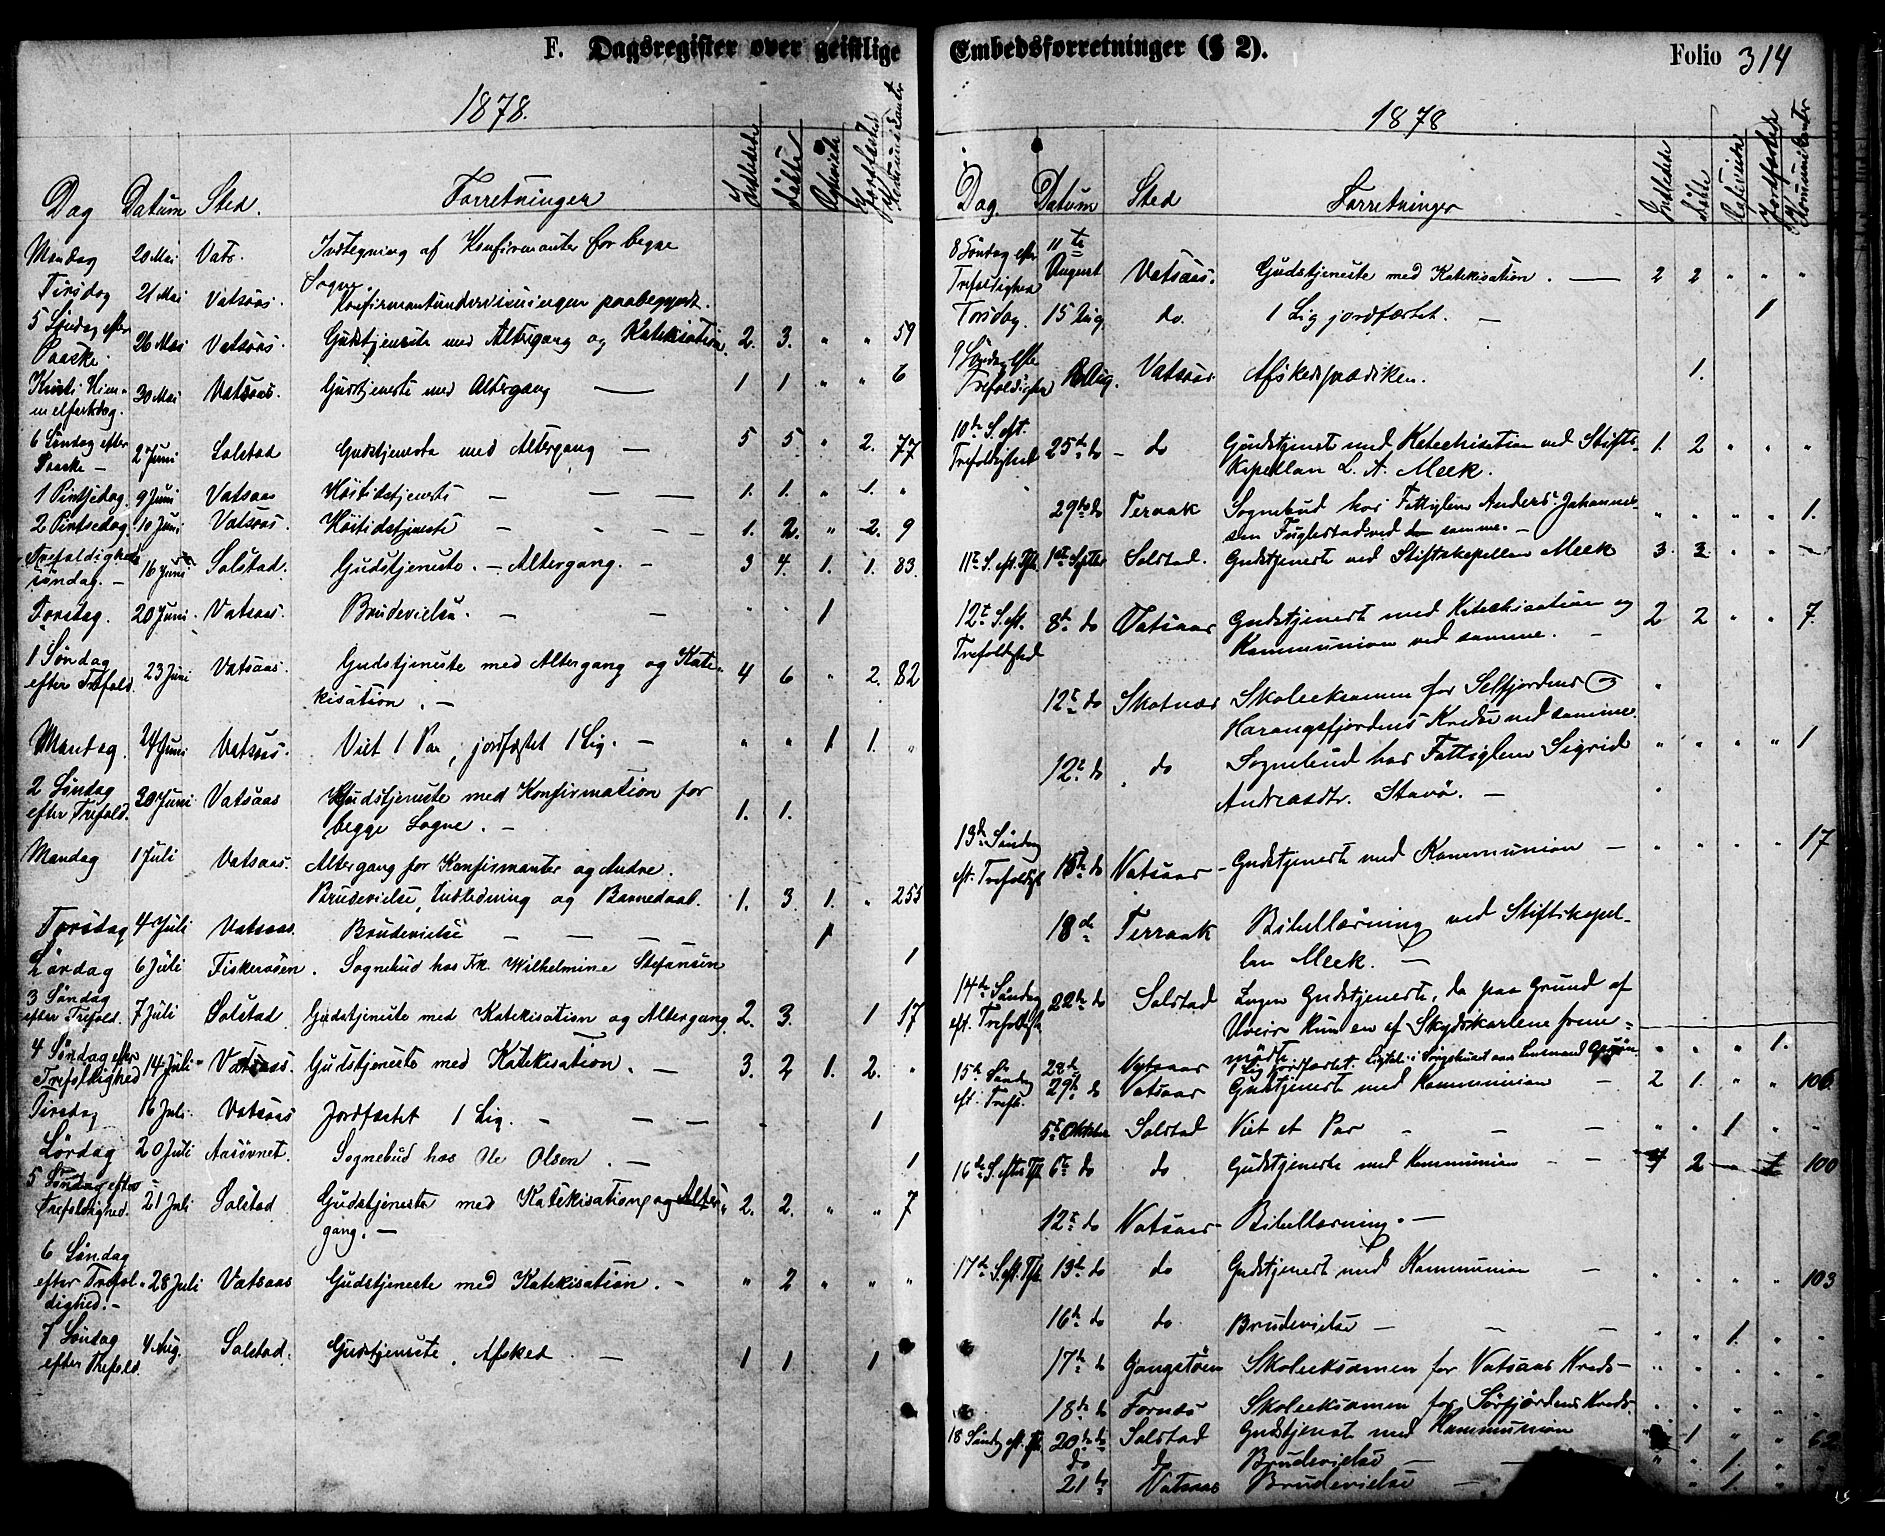 F. Dagsregister over geistlige
1878.
Dag Datum Sted. Forretninger Indledede Døbte Copulerede Jordfæstede Kommunikanter
Mandag 20 Mai Vats. Indtegning af Konfirmanter for begge
Sogne.
Tirsdag 21 Mai Vatsaas. Konfirmantundervisningen paabegyndt.
5 Søndag efter
Paaske. 26 Mai Vatsaas. Gudstjeneste med Altergang og Katekisation. 2. 3. " " 59
Kristi Him-
melfartsdag. 30 Mai Vatsaas. Gudstjeneste med Altergang — 1 1 " " 6
6 Søndag efter
Paaske — 2 Juni Solstad Gudstjeneste med Altergang — 5 5. " 2. 77
1 Pintsedag. 9 Juni Vatsaas Høitidstjeneste — — — 1. 1. " 1. "
2 Pintsedag. 10 Juni Vatsaas. Høitidstjeneste — - - 1. 2. " 2. 9
Trefoldigheds
søndag. — 16 Juni Solstad. Gudstjeneste. — Altergang. — 3 4. 1. 1. 83.
Torsdag. 20 Juni. Vatsaas. Brudevielse. — — " " 1
1 Søndag
efter Trefold. 23 Juni Vatsaas. Gudstjeneste med Altergang og Kate-
kisation. — 4 6 " 2. 82
Mandag. 24 Juni Vatsaas. Viet 1 Par, jordfæstet 1 Lig. — " " 1 1. "
2 Søndag
efter Trefold. 30 Juni Vatsaas Gudstjeneste med Konfirmation for
begge Sogne. — 1. 1.
Mandag 1 Juli Vatsaas. Altergang for Konfirmanter og Andre.
Brudevielse, Indledning og Barnedaab. 1. 3. 1. " 255
Torsdag 4 Juli Vatsaas. Brudevielse — — — 1
Lørdag 6 Juli Fiskerosen. Sognebud hos Frk. Wilhelmine Stefansen 1
3 Søndag
efter Trefold. 7 Juli Solstad. Gudstjeneste med Katekisation og Altergang. 2. 3. 1 17
4 Søndag efter
Trefoldighed 14 Juli Vatsaas. Gudstjeneste med Katekisation. — 3. 2 1. 2. "
Tirsdag 16 Juli. Vatsaas Jordfæstet 1 Lig. - — — 1
Lørdag 20 Juli Aasövnet. Sognebud hos Ole Olsen. — 1
5 Søndag efter
Trefoldighed. 21 Juli Solstad Gudstjeneste med Katekisation og Alter-
gang. — 2. 2. " " 7
6 Søndag
efter Trefol-
dighed. — 28 Juli Vatsaas Gudstjeneste med Katekisation. - " 2 " " "
7 Søndag
efter Trefold. 4 Aug. Solstad. Gudstjeneste. Afsked. — 1 1 1
Embedsforretninger (§ 2). Folio 314
1878
Dag. Datum Sted Forretninger Indledede Døbte Copulerede Jordfæstede Kommunikanter
8 Søndag efter
Trefoldighed 11te August Vatsaas. Gudstjeneste med Katekisation. — 2 2 " " "
Torsdag. 15 Aug do. 1 Lig jordfæstet. — 1
9 Søndag efter
Trefoldighed Aug. Vatsaas Afskedsprædiken. 1.
10de S. eft.
Trefoldighed 25de do — do Gudstjenest med Katechisation ved Stifts-
kapellan L. A. Meek. 1. 2 " " "
29de do Teraak Sognebud hos Fattiglem Anders Johannes-
sen Fuglestad ved samme. — " " " " 1.
11te S. eft. Tfh. 1ste Septbr Solstad. Gudstjeneste ved Stiftskapellan Meek 3. 3. " " —
12te S. eft.
Trefoldighed 8de do Vatsaas Gudstjenest med Katechisation og
Kommunion ved samme. — 2 2 " " 7.
12te do Skotnæs Skoleeksamen for Selfjordens og
Harangsfjordens Kredse ved samme. "
12te do do Sognebud hos Fattiglem Sigrid
Andreasdtr. Stavö. — " " " " 1
13de Søndag
eft. Trefoldigh. 15de do Vatsaas Gudstjeneste med Kommunion — " " " " 17
18de Terraak Bibellæsning ved Stiftskapel-
lan Meek. —
14de Søndag
eft. Trefoldigh. 22de do Solstad Ingen Gudstjeneste, da paa Grund af
Uveir kun en af Skydskarlene frem-
mødte.
28de Vatsaas 1 Lig jordfæstet. " " " 1.
15de Søndag
eft. Trefh. 29de do Vatsaas Gudstjenest med Kommunion — 2 1. " " 106.
5te Oktober Solstad Viet et Par — — " " 1 " "
16de S. efter Tfh 6te do do Gudstjeneste med Kommunion — — 2 — 100
12te do Vatsaas Bibellæsning. —
17de S. eft. Tfh. 13de do do Gudstjenest med Kommunion — " " " " 103
16de do do. Brudevielse — — — " " 1. " "
17de do Gangstöen Skoleeksamen for Vatsaas Kreds — " " " " "
18de do Fornæs Skoleeksamen for Sörfjördens Kreds. " " " " "
18 Søndag eft. Tfh. 20de do Solstad Gudstjenest med Kommunion 1 " " 62
do do Brudevielse — — " " 1. " "
21de Vatsaas Brudevielse — " 1. " "